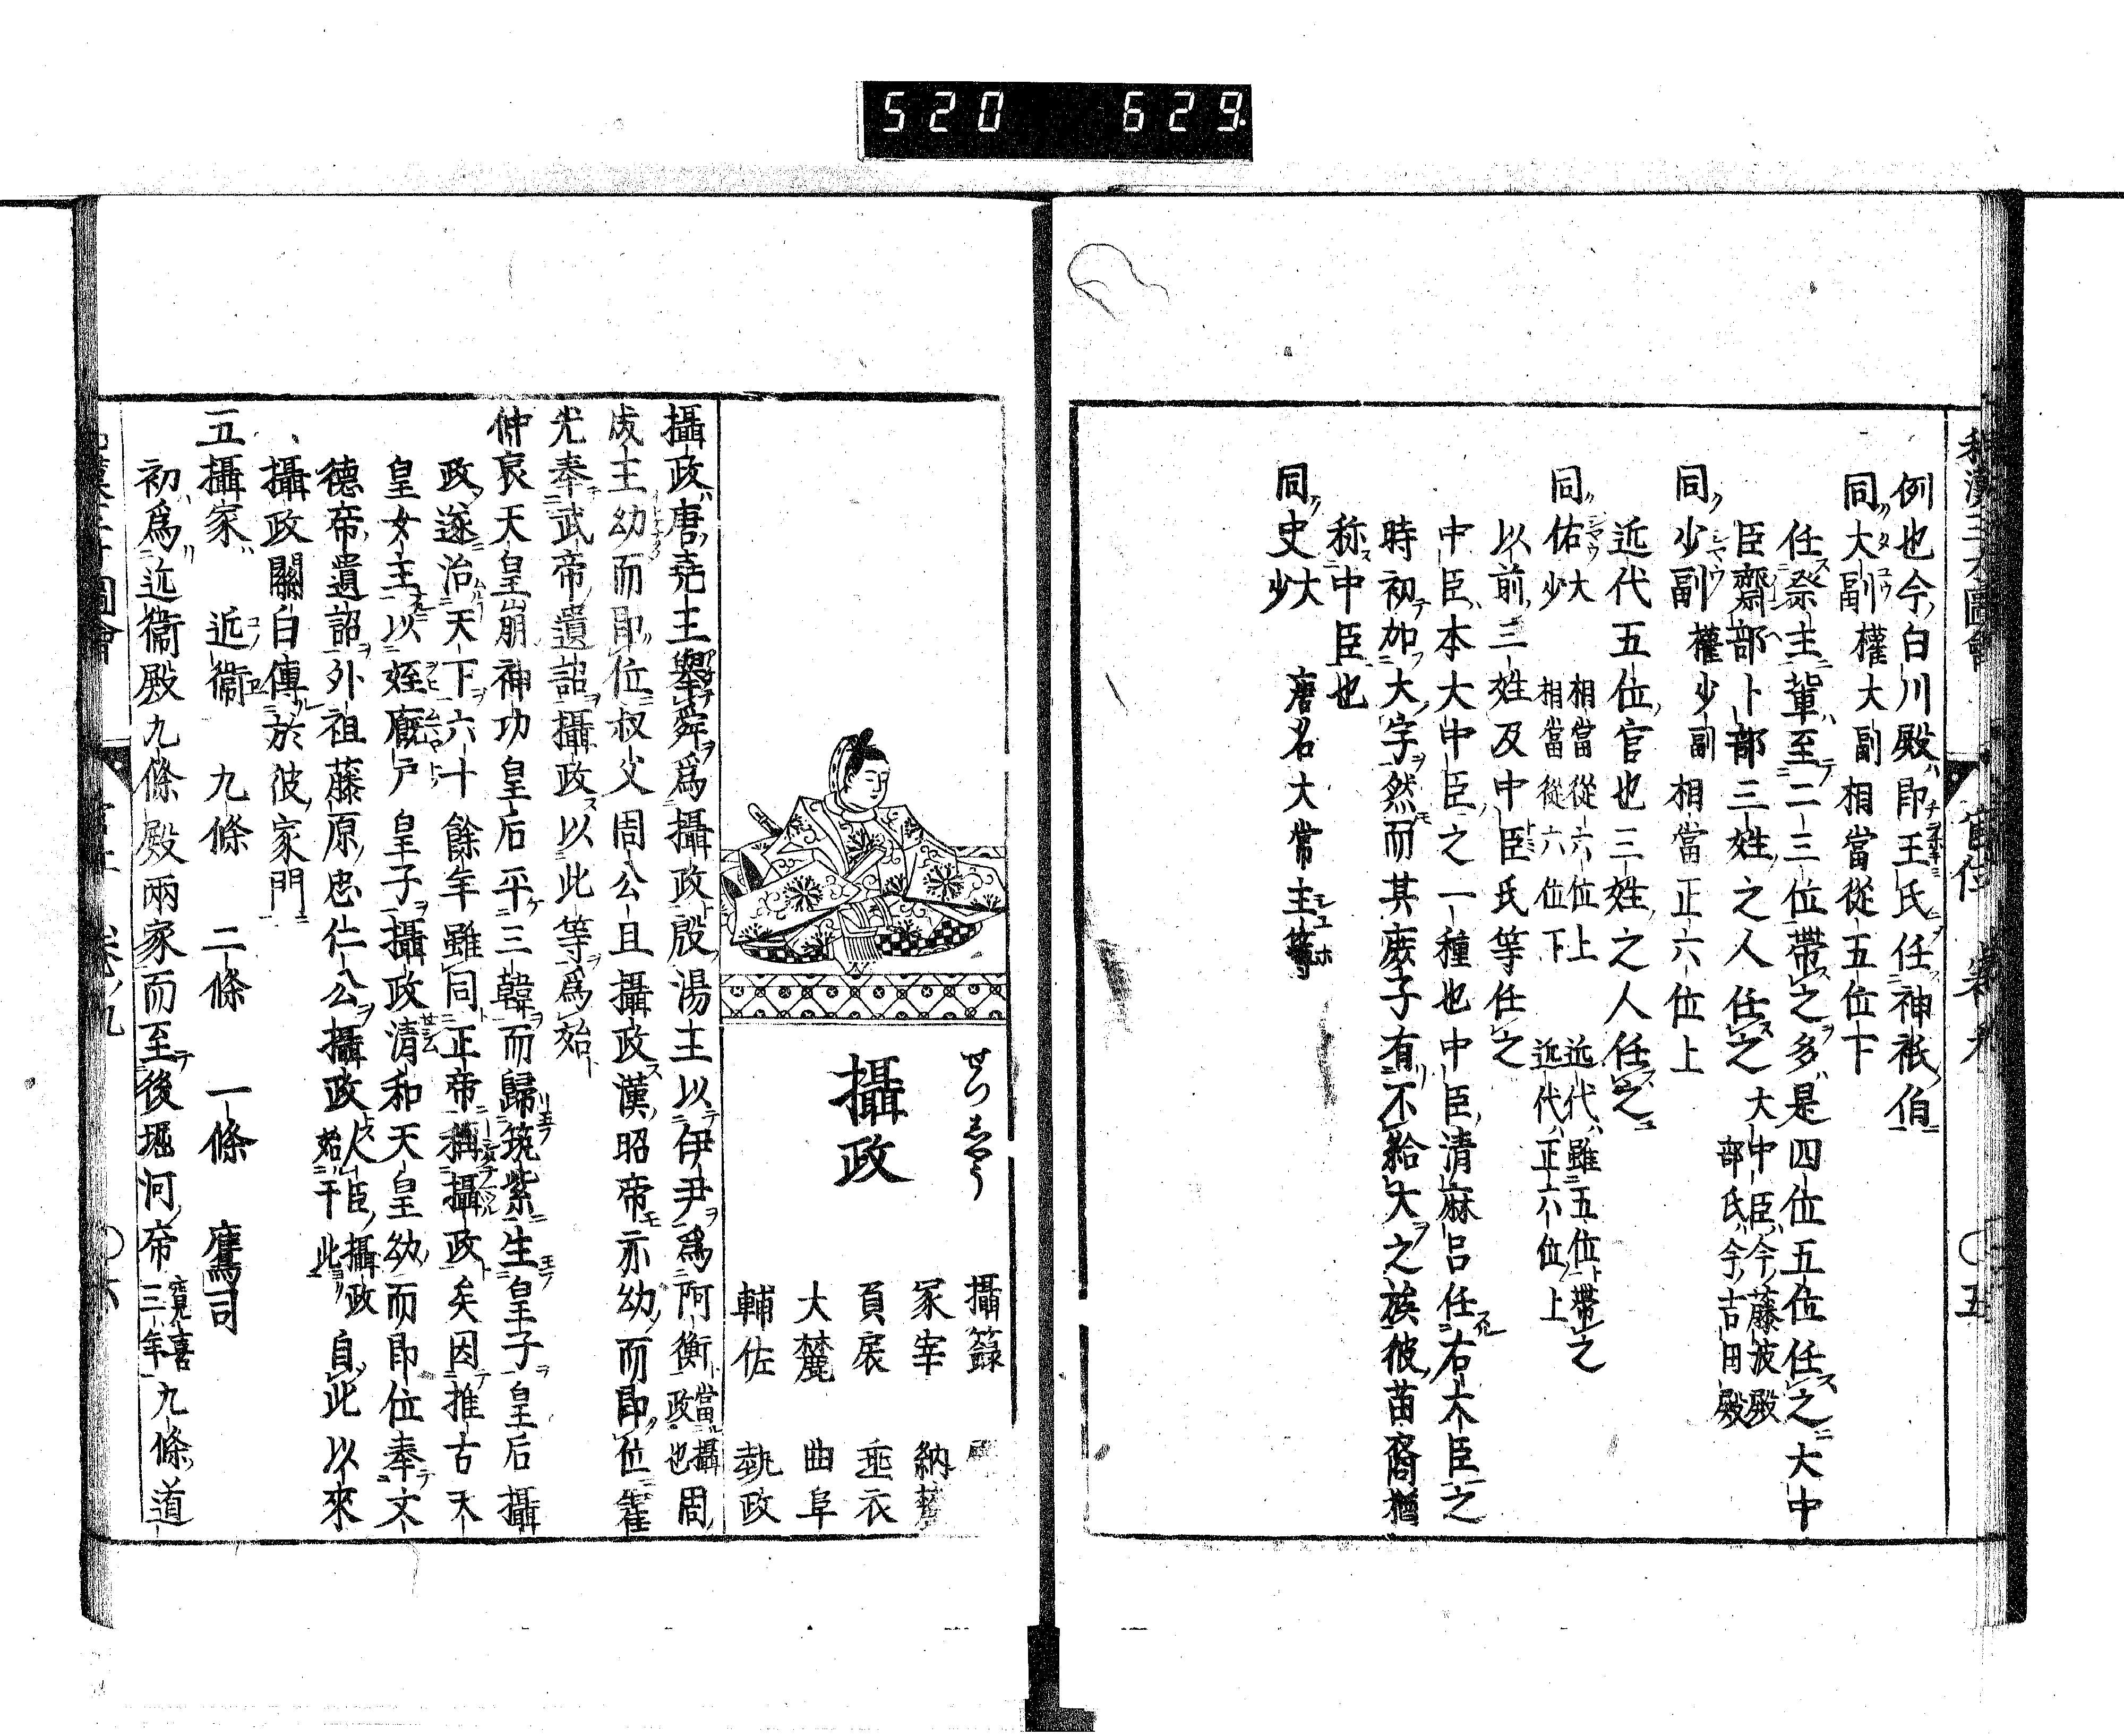 520 629
官位 卷九 〇五
例也今白川殿即王氏任神祇伯
同大副 權大副 相當從五位下
任祭主輩至二三位帶之多是四位五位任之大中
臣齋部卜部三姓之人任之 大中臣今藤波殿
部氏今吉田殿
同少副 權少副 相當正六位上
近代五位官也三姓之人任之
同佑 大 相當從六位上 近代雖五位帶之
少 相當從六位下 近代正六位上
以前三姓及中臣氏等任之
中臣本大中臣之一種也中臣清麻呂任右大臣之
時初加大字然而其庶子有不給大之族彼苗裔猶
称中臣也
同史 大
少 唐名大常主等
せつしやう
攝政
攝籙
冢宰 納麓
負扆 垂衣
大麓 曲阜
輔佐 執政
攝政唐尭主舉舜爲攝政殷湯主以伊尹爲阿衡 當攝
政也 周
成王幼而即位叔父周公且攝政漢昭帝亦幼而即位霍
光奉武帝遺詔攝政以此等爲始
仲哀天皇崩神功皇后平三韓而歸筑紫生皇子皇后攝
政遂治天下六十餘年雖同正帝稱攝政矣因推古天
皇女主以姪廐戸皇子攝政清和天皇幼而即位奉文
德帝遺詔外祖藤原忠仁公攝政 人臣攝政
始于此 自此以來
攝政關白傳於彼家門
五攝家 近衞 九條 二條 一條 鷹司
初爲近衞殿九條殿兩家而至後堀河帝 寛喜
三年 九條道